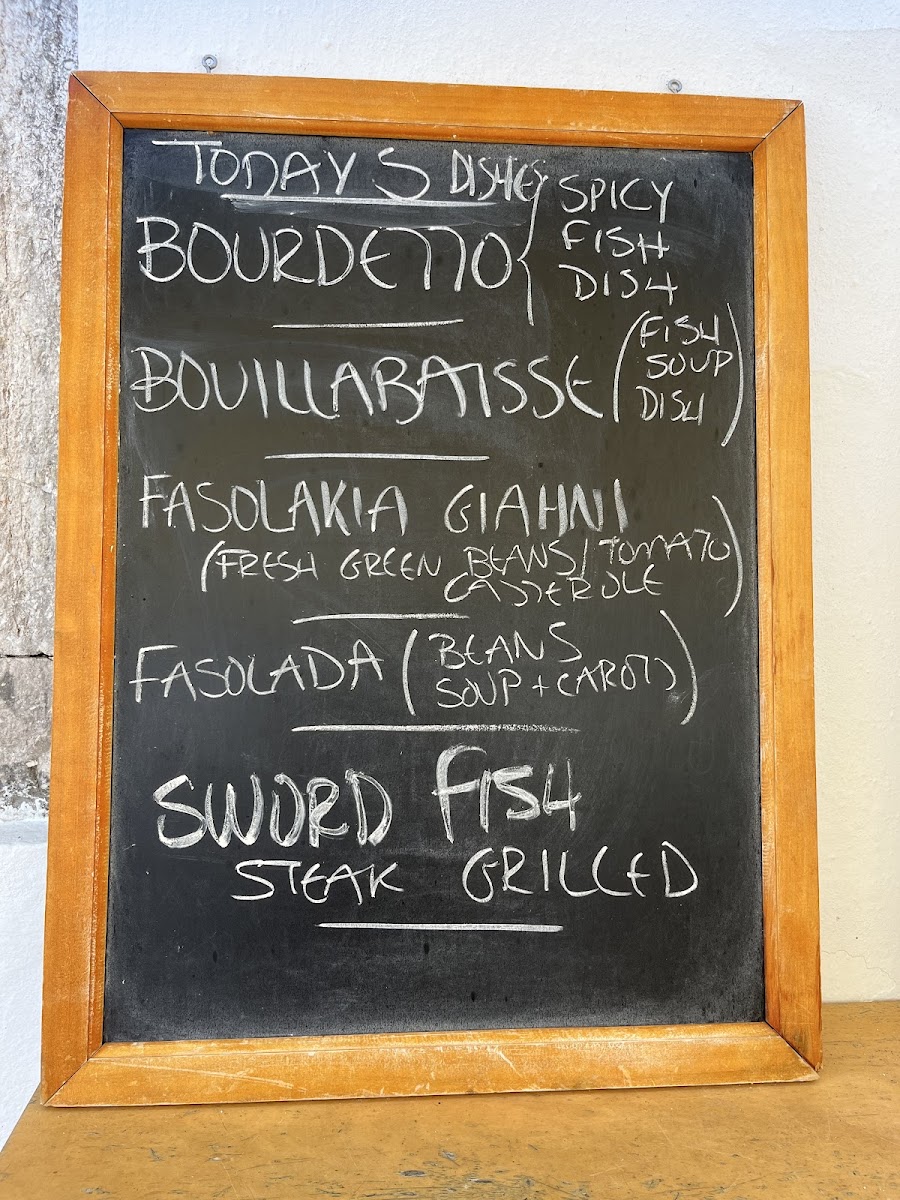 TODAY S DISHES
BOURDETTO { SPICY
FISH
DISH
BOUILLABAISSE (FISH
SOUP
DISH)
FASOLAKIA GIAHNI
(FRESH GREEN BEANS/TOMATO
CASSEROLE)
FASOLADA (BEANS
SOUP + CAROTS)
SWORD FISH
STEAK GRILLED